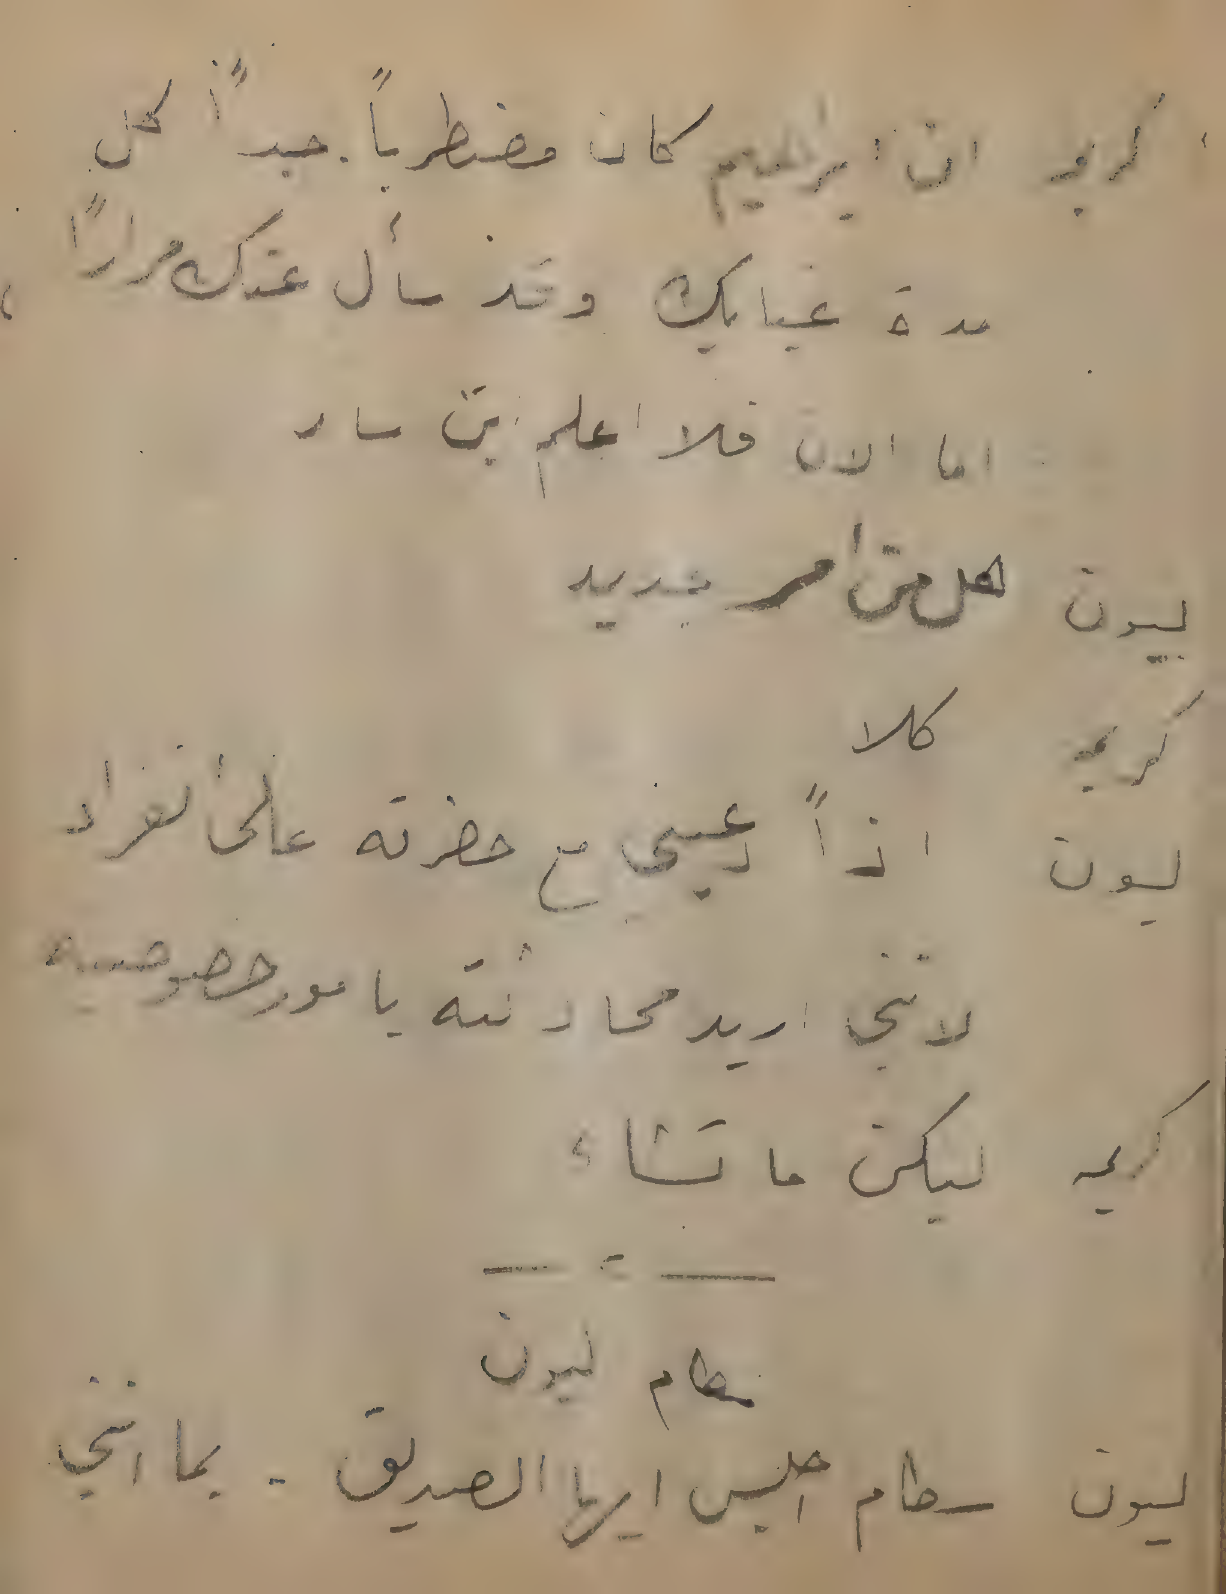 كريمه ان ابراهيم كان مضطرباً جداً كل
مدة غيابك وقد سأل عنك مراراً
اما الان فلا اعلم اين سار
ليون هل من امر جديد
كريمه كلا
ليون اذاً دعيني مع حضرته على انفراد
لانني اريد محادثته بامور خصوصيه
كريمه ليكن ما تشاء
سطام ليون
ليون سطام اجلس ايها الصديق . بما انني